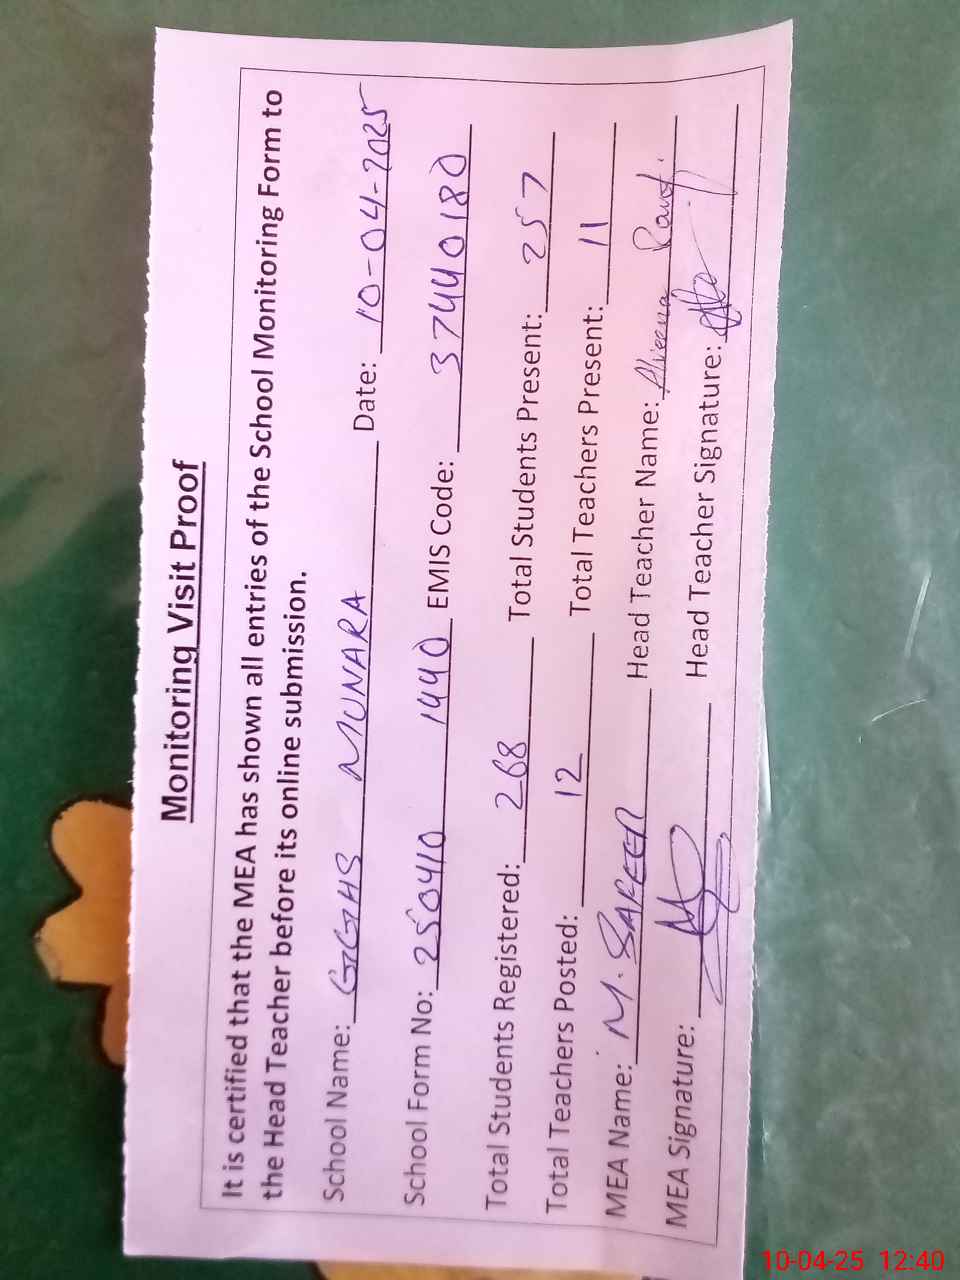 Monitoring Visit Proof
It is certified that the MEA has shown all entries of the School Monitoring Form to
the Head Teacher before its online submission.
School Name: GGHS MUNARA Date: 10-04-2025
School Form No: 250410 1440 EMIS Code: 37440180
Total Students Registered: 268 Total Students Present: 257
Total Teachers Posted: 12 Total Teachers Present: 11
MEA Name: M. SAFEER Head Teacher Name: Alveena Rauf.
MEA Signature: Head Teacher Signature:
10-04-25 12:40